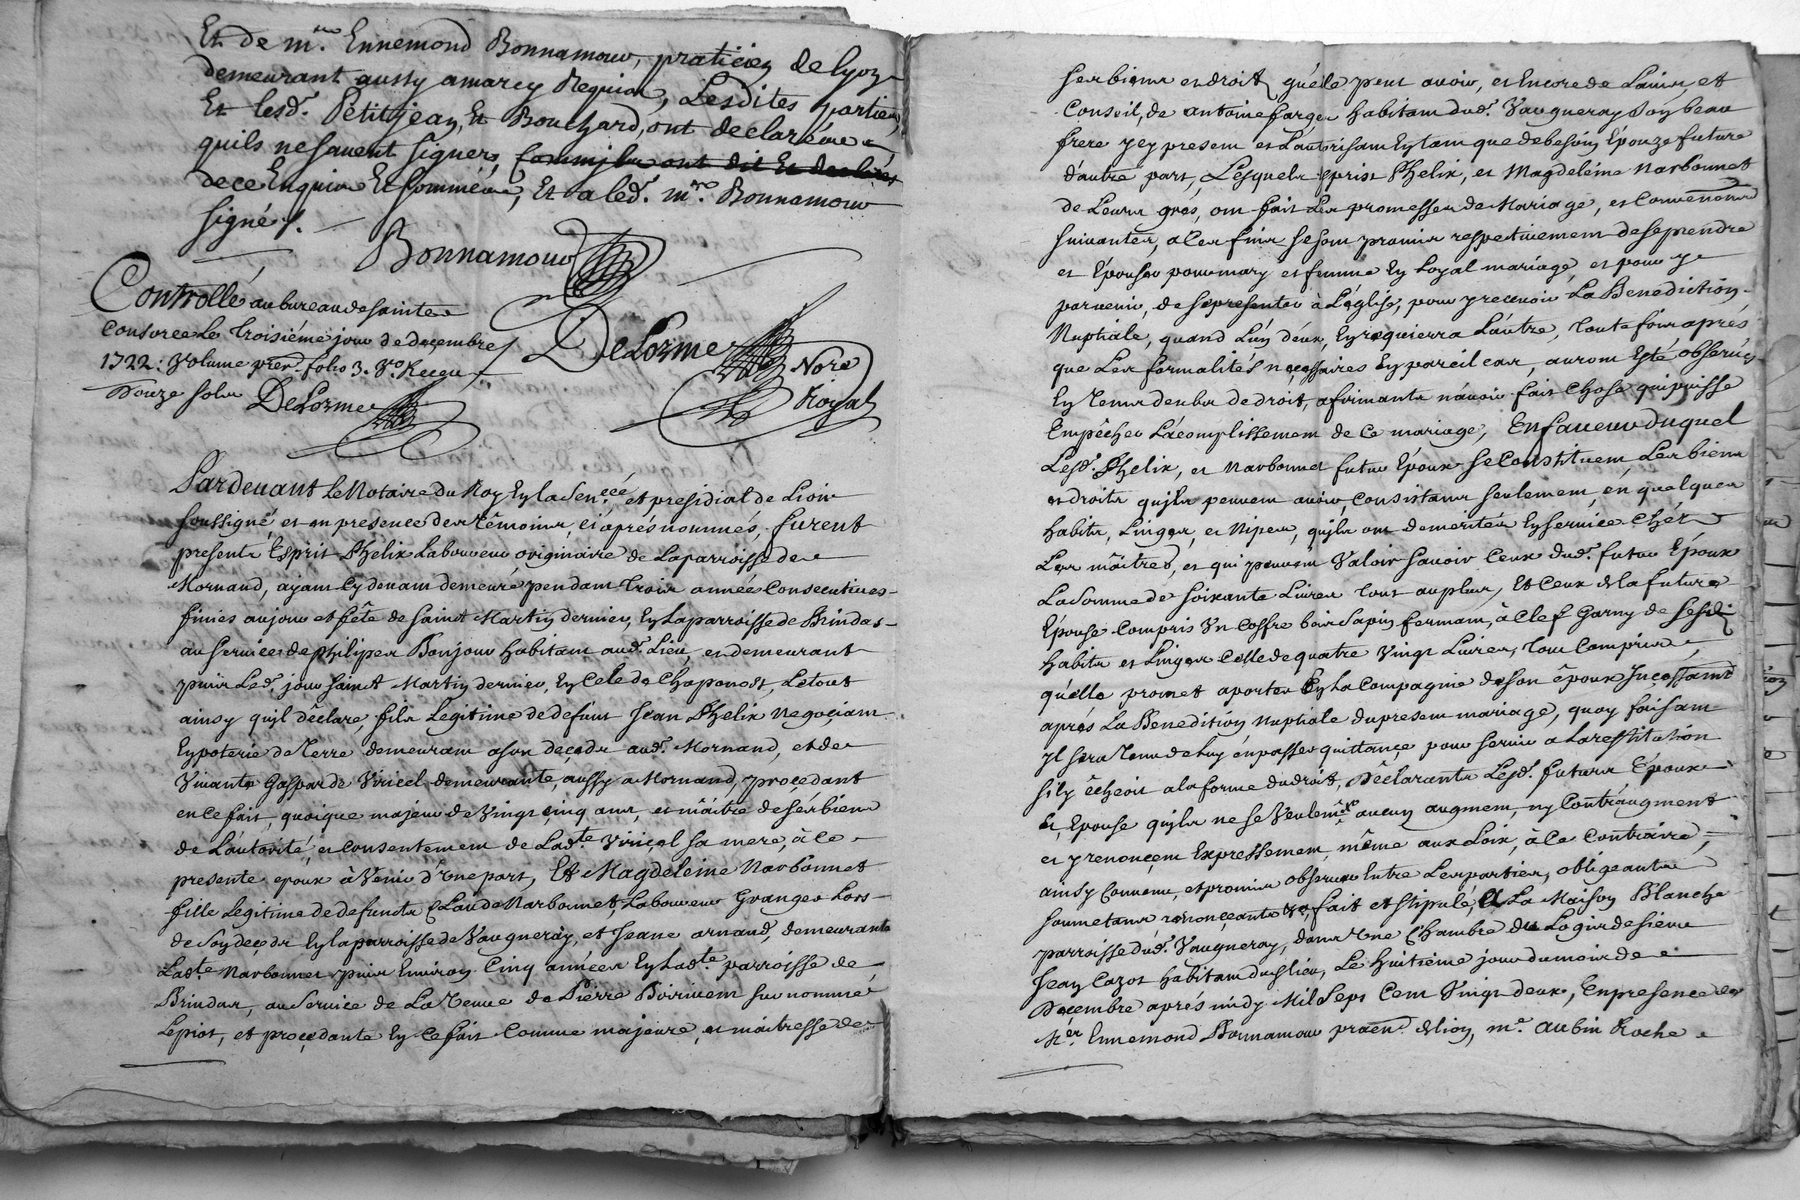 Et de m.re Ennemond Bonnamour, praticien de lyon
demeurant aussy a marcy Requis, Lesdites parties
Et lesd. Petitjean, Et Bouchard, ont declaré
quils ne savent signer, ont dit Et declaré
de ce Enquis Et sommé, Et a led. m.re Bonnamour
signé ./.
Bonnamour
Controllé au bureau de sainte
Consorce Le troisiéme jour de decembre
1722: Volume prem. folio 3. Vo. Receu
Douze sols DeLorme
DeLorme
Nore
Royal
Pardevant Le Notaire du Roy En la Sen.cée et presidial de Lion
soussigné, et en presence des têmoins cy aprés nommés, furent
presents Esprit Phélix Laboureur originaire de La parroisse de
Mornand, ayant cy devant demeuré pendant trois année Consecutives
finies au jour et fête de saint Martin dernier, En La parroisse de Brindas
au service de philipes Bonjour habitant aud. Lieu, et demeurant
puis Led. jour saint Martin dernier, En Celle de Chaponost, Le tout
ainsy quil dêclare, fils Legitime de defunt Jean Phelix Negociant
En poterie de Terre demeurant a son decedz aud. Mornand, et de
Vivante Gasparde Viricel demeurante, aussy a Mornand, proçedant
en ce fait, quoique majeur de Vingt cinq ans, et maître de ses biens
de L'autorité, et consentement de Lad.te Viricel sa mere, à le
presente epoux à Venir d'Une part, Et Magdeleine Narbonnet
fille Legitime de defunts Claude Narbonnet, Laboureur Granger Lors
de son decedz En la parroisse de Vaugneray, et Jeane arnaud, demeurante
Lad.te Narbonnet puis Environ Cinq années En Lad.te parroisse de
Brindas, au Service de La Veuve de Pierre Boirivent surnommé
Lepiot, et proçedante En Ce fait Comme majeure, et maitresse de
ses biens et droits qu'elle peut avoir, et Encore de L'avis, et
Conseil, de antoine farge habitant dud. Vaugneray Son beau
frere y cy present et L'autorisant En tant que de besoin Epouze future
d'autre part, Lesquels esprit Phelix, et Magdeleine Narbonnet
de Leurs grés, ont fait Les promesses de Mariage, et Conventions
suivantes, a Ces fins se sont promis respectivement de se prendre
et Epouser pour mary et femme En Loyal mariage, et pour y
parvenir, de se presenter à L'église, pour y recevoir La Benediction
Nuptiale, quand L'un deux, En requierra L'autre, Toute fois aprés
que Les formalités neçessaires En pareil cas, auront Esté observés
En Termes de droit, afirmants n'avoir fait Chose qui puisse
Empêcher L'acomplissement de Ce mariage, En faveur duquel
Lesd. Phelix, et Narbonnet futur Epoux se Constituent Les biens
et droits quils peuvent avoir, Consistans seulement, en quelques
habits, Linges, et Nipes, quils ont demerités En service chés
Les maîtres, et qui peuvent Valoir savoir Ceux dud. futur Epoux
La somme de soixante Livres tout au plus, Et Ceux de la future
Epouse Compris Un Coffre bois sapin fermant, à Clef Garny de sesd.
habits et Linges Celle de quatre Vingt Livres, tout Compris,
qu'elle promet aporter En La Compagnie de son époux Incessament
aprés La Benediction Nuptiale du present mariage, quoy faisant
Il sera Tenu de Luy en passer quittance pour servir a La restitution
sil y écheoit a la forme du droit, Dêclarants Lesd. futurs Epoux
Et, Epouse quils ne se Veulent aucun augment, ny Contraugment
et y renonçent Expressement, même aux Loix, à Ce Contraire,
ainsy Convenu, et promis observer Entre Les parties, obligeants
soumetans renonçeants &a. fait et stipulé, A La Maison Blanche
parroisse dud. Vaugneray, dans Une Chambre du Logis de sieur
Jean Cazot habitant dud. lieu, Le huitieme jour du mois de
Decembre aprés midy Mil Sept Cent Vingt deux, En presence de
Mer. Ennemond Bonnamour praen. de lion, me. aubin Roche